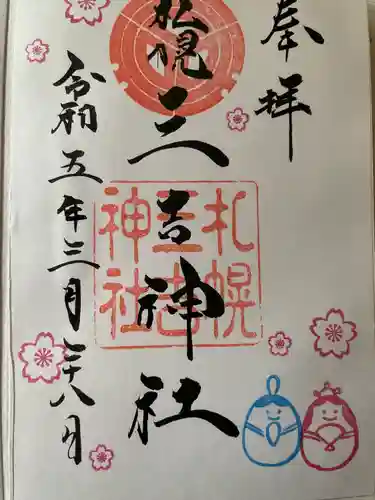 奉拝
札幌三吉神社
令和五年三月二十八日
札幌
三吉
神社